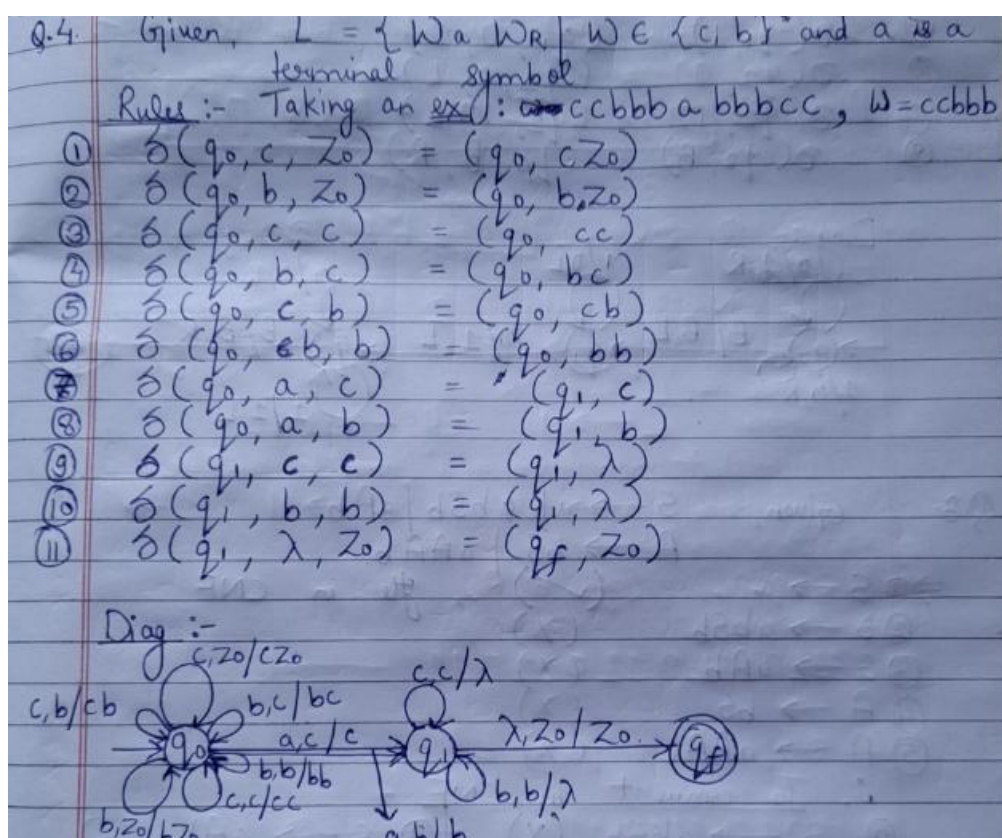 Q.4. Given, L = { Wa WR | W ∈ {c, b}* and a is a
terminal symbol
Rules :- Taking an ex(): ccbbb a bbbcc, W = ccbbb
① δ(q0, c, Z0) = (q0, cZ0)
② δ(q0, b, Z0) = (q0, b,Z0)
③ δ(q0, c, c) = (q0, cc)
④ δ(q0, b, c) = (q0, bc)
⑤ δ(q0, c, b) = (q0, cb)
⑥ δ(q0, b, b) = (q0, bb)
⑦ δ(q0, a, c) = (q1, c)
⑧ δ(q0, a, b) = (q1, b)
⑨ δ(q1, c, c) = (q1, λ)
⑩ δ(q1, b, b) = (q1, λ)
⑪ δ(q1, λ, Z0) = (qf, Z0)
Diag :-
c,Z0/cZ0
c,c/λ
c,b/cb
b,c/bc
q0
a,c/c
q1
λ,Z0/Z0
qf
b,b/bb
c,c/cc
b,b/λ
b,Z0/bZ0
a,b/b